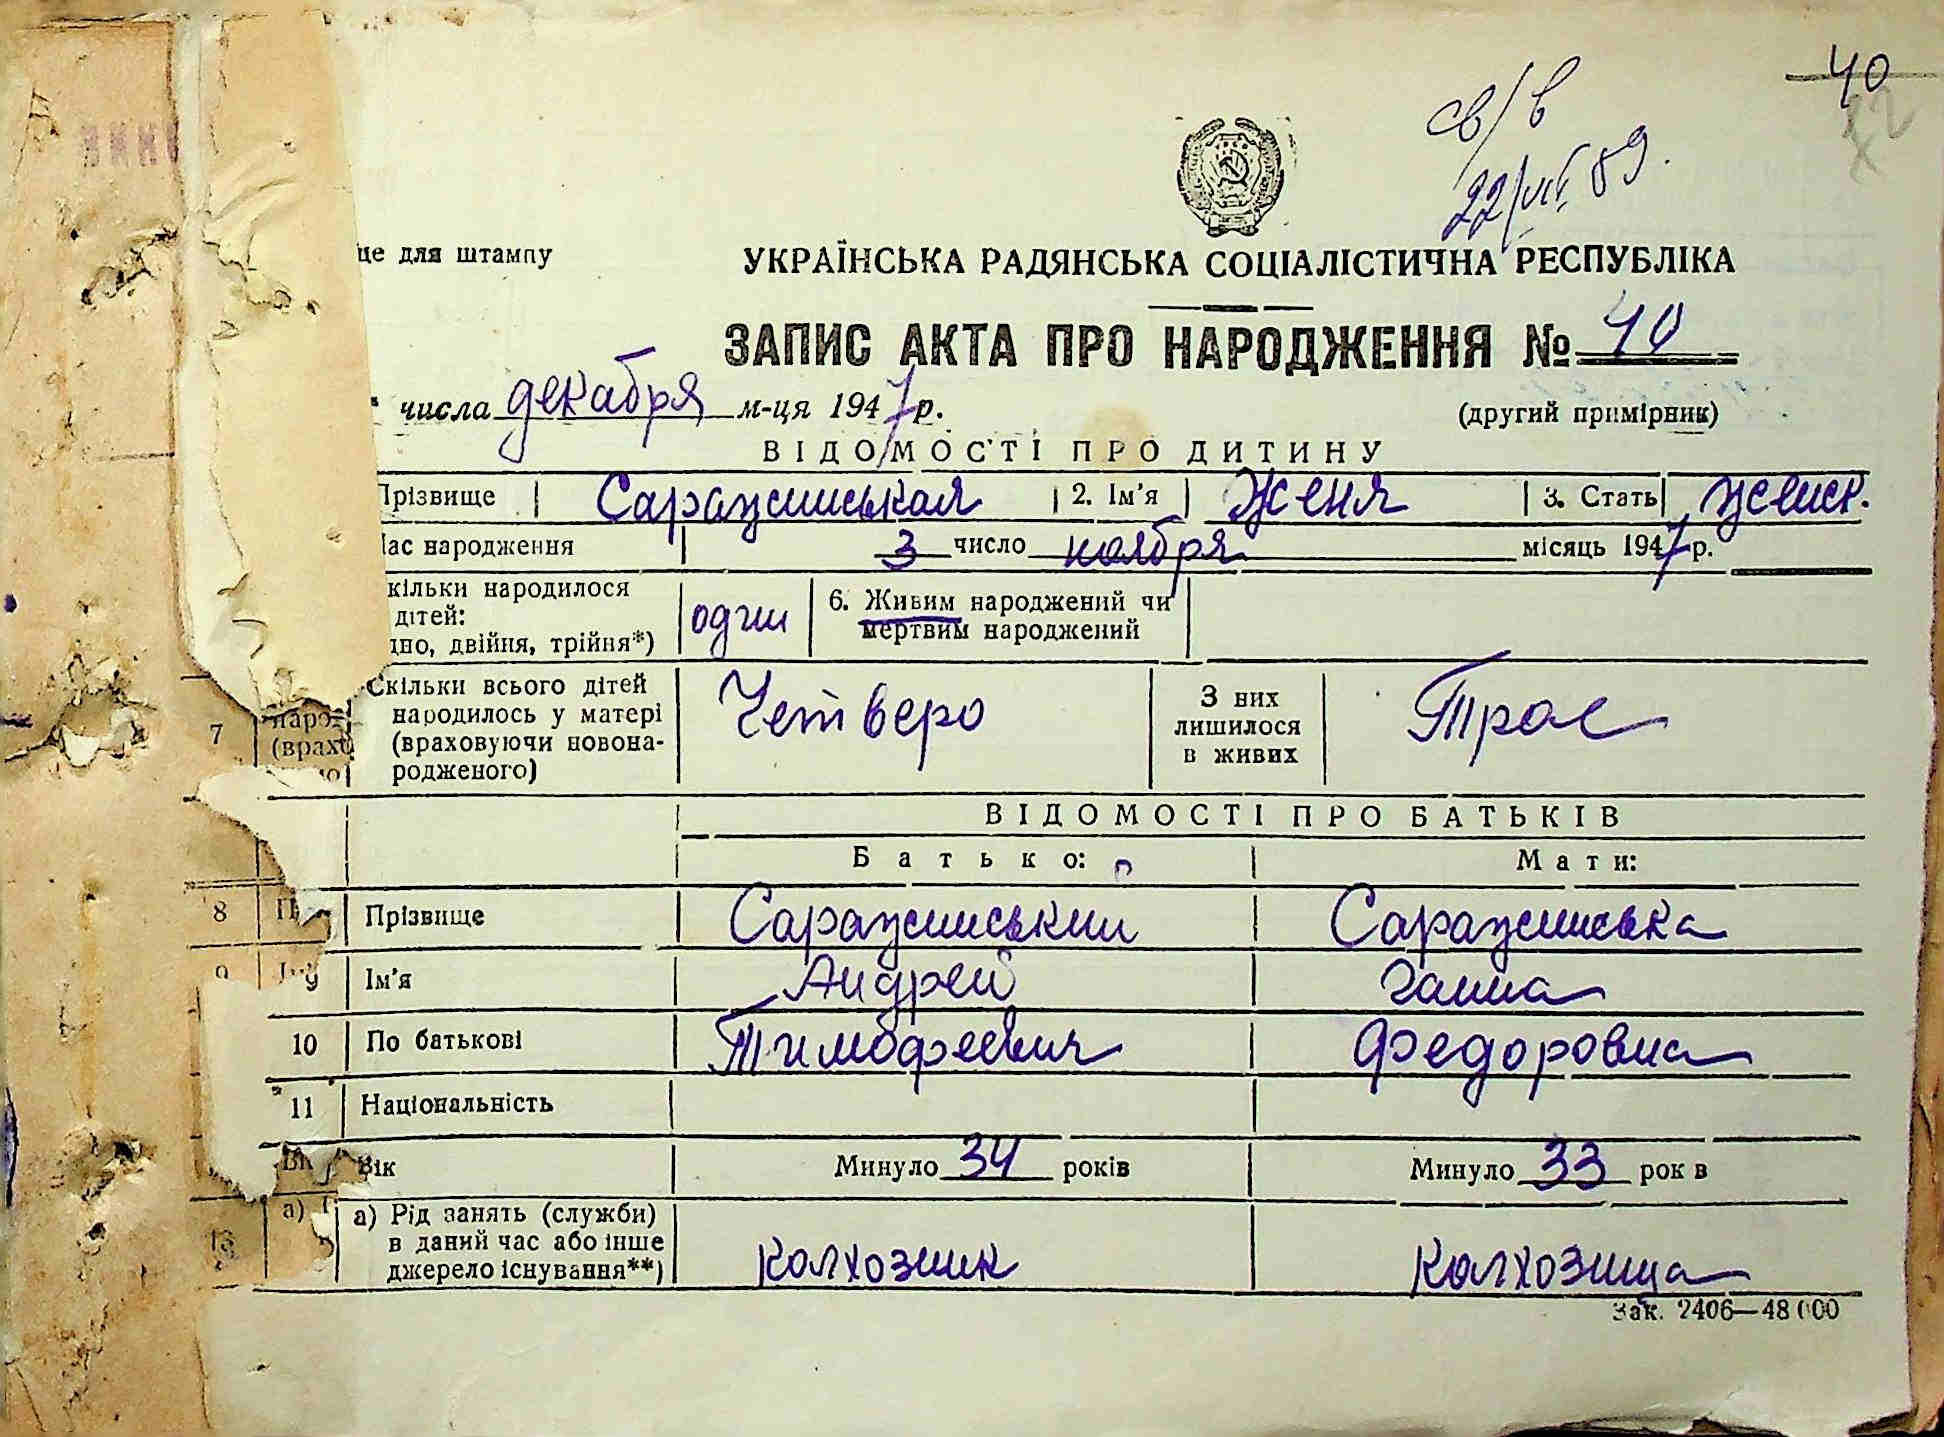 40
св/в
22/VII 89.
це для штампу
УКРАЇНСЬКА РАДЯНСЬКА СОЦІАЛІСТИЧНА РЕСПУБЛІКА
ЗАПИС АКТА ПРО НАРОДЖЕННЯ № 40
числа декабря м-ця 1947 р.
(другий примірник)
ВІДОМОСТІ ПРО ДИТИНУ
Прізвище 2. Ім'я Женя 3. Стать женск.
Час народження 3 число ноября місяць 1947 р.
кільки народилося дітей: дно, двійня, трійня*) один 6. Живим народжений чи мертвим народжений
7 Скільки всього дітей народилось у матері (враховуючи новонародженого) Четверо З них лишилося в живих Трое
ВІДОМОСТІ ПРО БАТЬКІВ
Батько: Мати:
8 Прізвище
Ім'я Андрей Ганна
10 По батькові Тимофеевич Федоровна
11 Національність
Вік Минуло 34 років Минуло 33 рок в
а) Рід занять (служби) в даний час або інше джерело існування**) колхозник колхозница
Зак. 2406—48 000